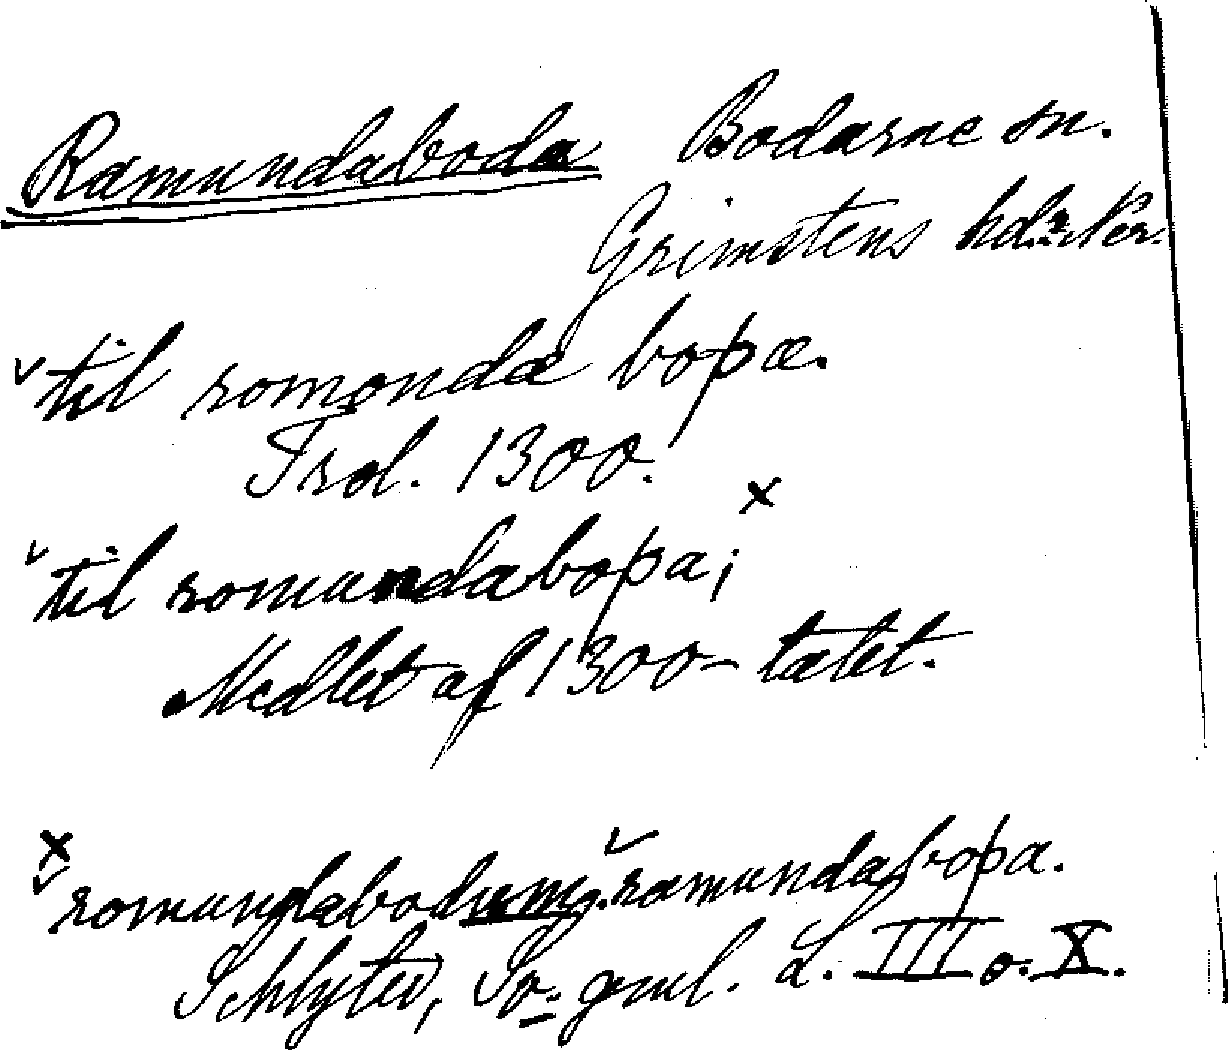 Ramundaboda Bodarne sn.
Grimstens hd. Ner.
til romondæ boþæ.
Frol. 1300.
x
til romundaboþa;
Medlet af 1300-talet.
x
romundabodum, ramundaboþa.
Schlyter, Sv. gml. L. III o. X.